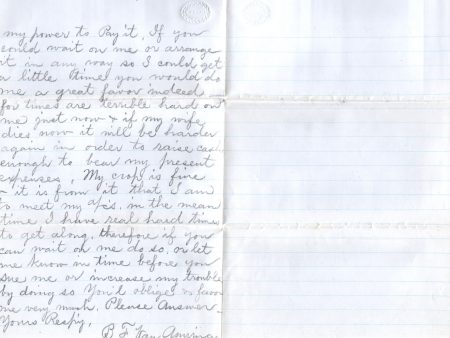 my power to Pay it, If you
could wait on me or arrange
it in any way so I could get
a little time you would do
me a great favor indeed
for times are terrible hard on
me just now & if my wife
dies now it will be harder
again in order to raise cash
enough to bear my present
expenses, My crop is fine
& it is from it that I am
to meet my a/cs. in the mean
time I have real hard time
to get along, therefore if you
can wait on me do so, or let
me know in time before you
Sue me or increase my trouble
by doing so You'd oblige & favor
me very much. Please Answer
Yours Resp'y,
B F Van